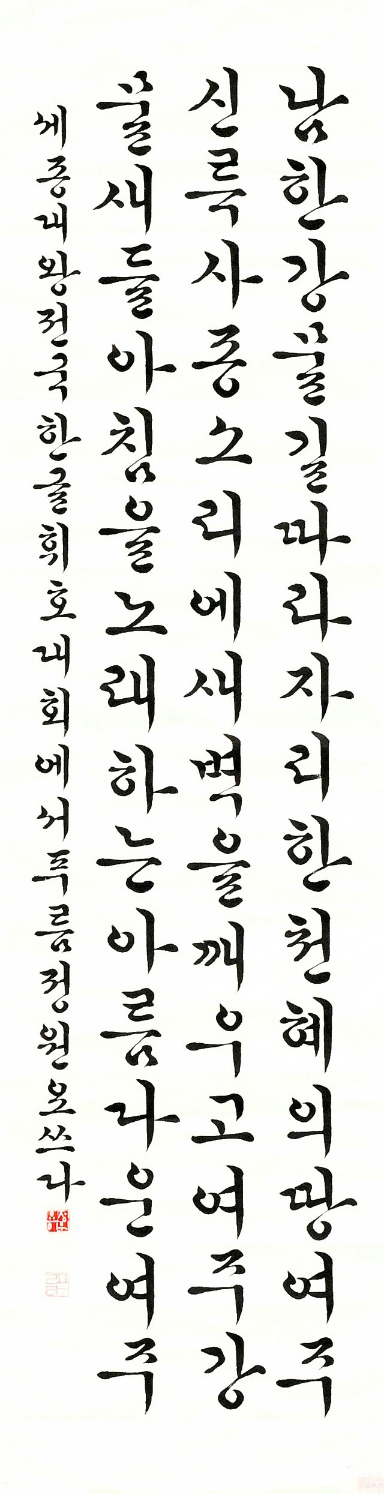 남한강물길따라자리한천혜의땅여주
신륵사종소리에새벽을깨우고여주강
물새들아침을노래하는아름다운여주
세종대왕전국한글휘호대회에서푸름정원오쓰다